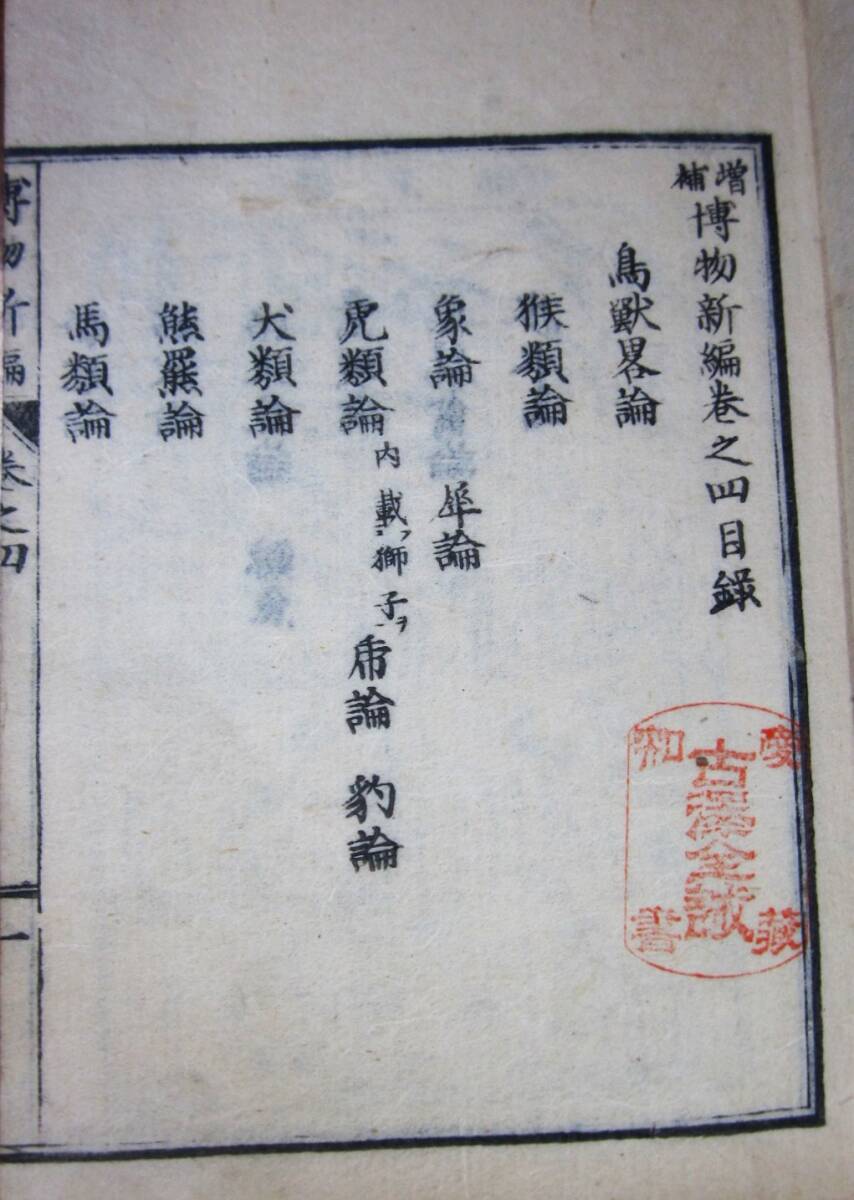 增補博物新編巻之四目録
鳥獣畧論
猴類論
象論　犀論
虎類論 内載獅子ヲ 乕論　豹論
犬類論
熊羆論
馬類論
博物新編　巻之四　一
藏書